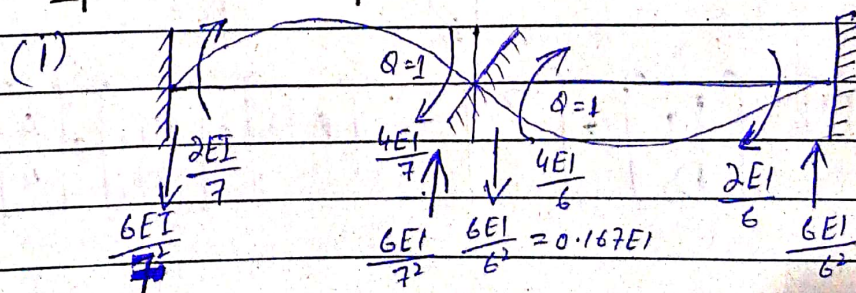 (i)
Q=1
Q=1
2EI/7
4EI/7
4EI/6
2EI/6
6EI/7²
6EI/7²
6EI/6² = 0.167EI
6EI/6²